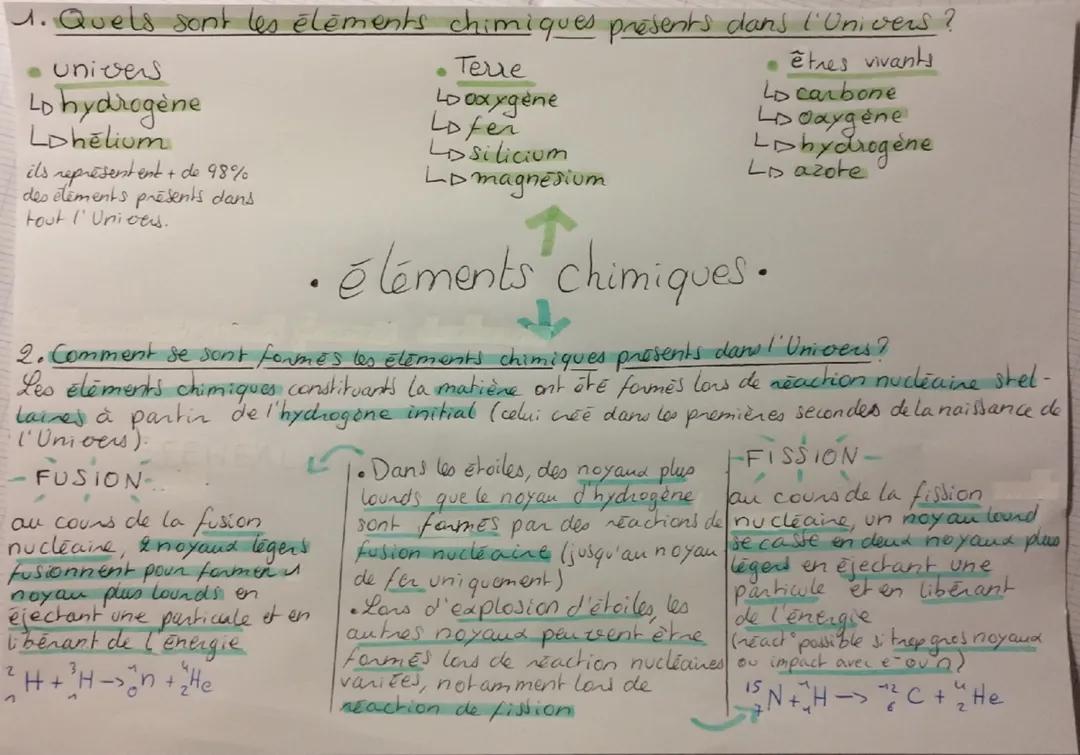 1. Quels sont les éléments chimiques présents dans l'Univers ?
• univers
↳ hydrogène
↳ hélium
ils représentent + de 98%
des éléments présents dans
tout l'Univers.
• Terre
↳ oxygène
↳ fer
↳ silicium
↳ magnésium
• êtres vivants
↳ carbone
↳ oxygène
↳ hydrogène
↳ azote
• éléments chimiques •
2. Comment se sont formés les éléments chimiques présents dans l'Univers ?
Les éléments chimiques constituants la matière ont été formés lors de réaction nucléaire stel-
laires à partir de l'hydrogène initial (celui créé dans les premières secondes de la naissance de
l'Univers).
- FUSION -
au cours de la fusion
nucléaire, 2 noyaux légers
fusionnent pour former 1
noyau plus lourds en
éjectant une particule et en
libérant de l'énergie
²₁H + ³₁H -> ¹₀n + ⁴₂He
• Dans les étoiles, des noyaux plus
lourds que le noyau d'hydrogène
sont formés par des réactions de
fusion nucléaire (jusqu'au noyau
de fer uniquement)
• Lors d'explosion d'étoiles, les
autres noyaux peuvent être
formés lors de réaction nucléaires
variées, notamment lors de
réaction de fission
- FISSION -
au cours de la fission
nucléaire, un noyau lourd
se casse en deux noyaux plus
légers en éjectant une
particule et en libérant
de l'énergie
(réact° possible si trop gros noyaux
ou impact avec e- ou n)
¹⁵₇N + ¹₁H -> ¹²₆C + ⁴₂He